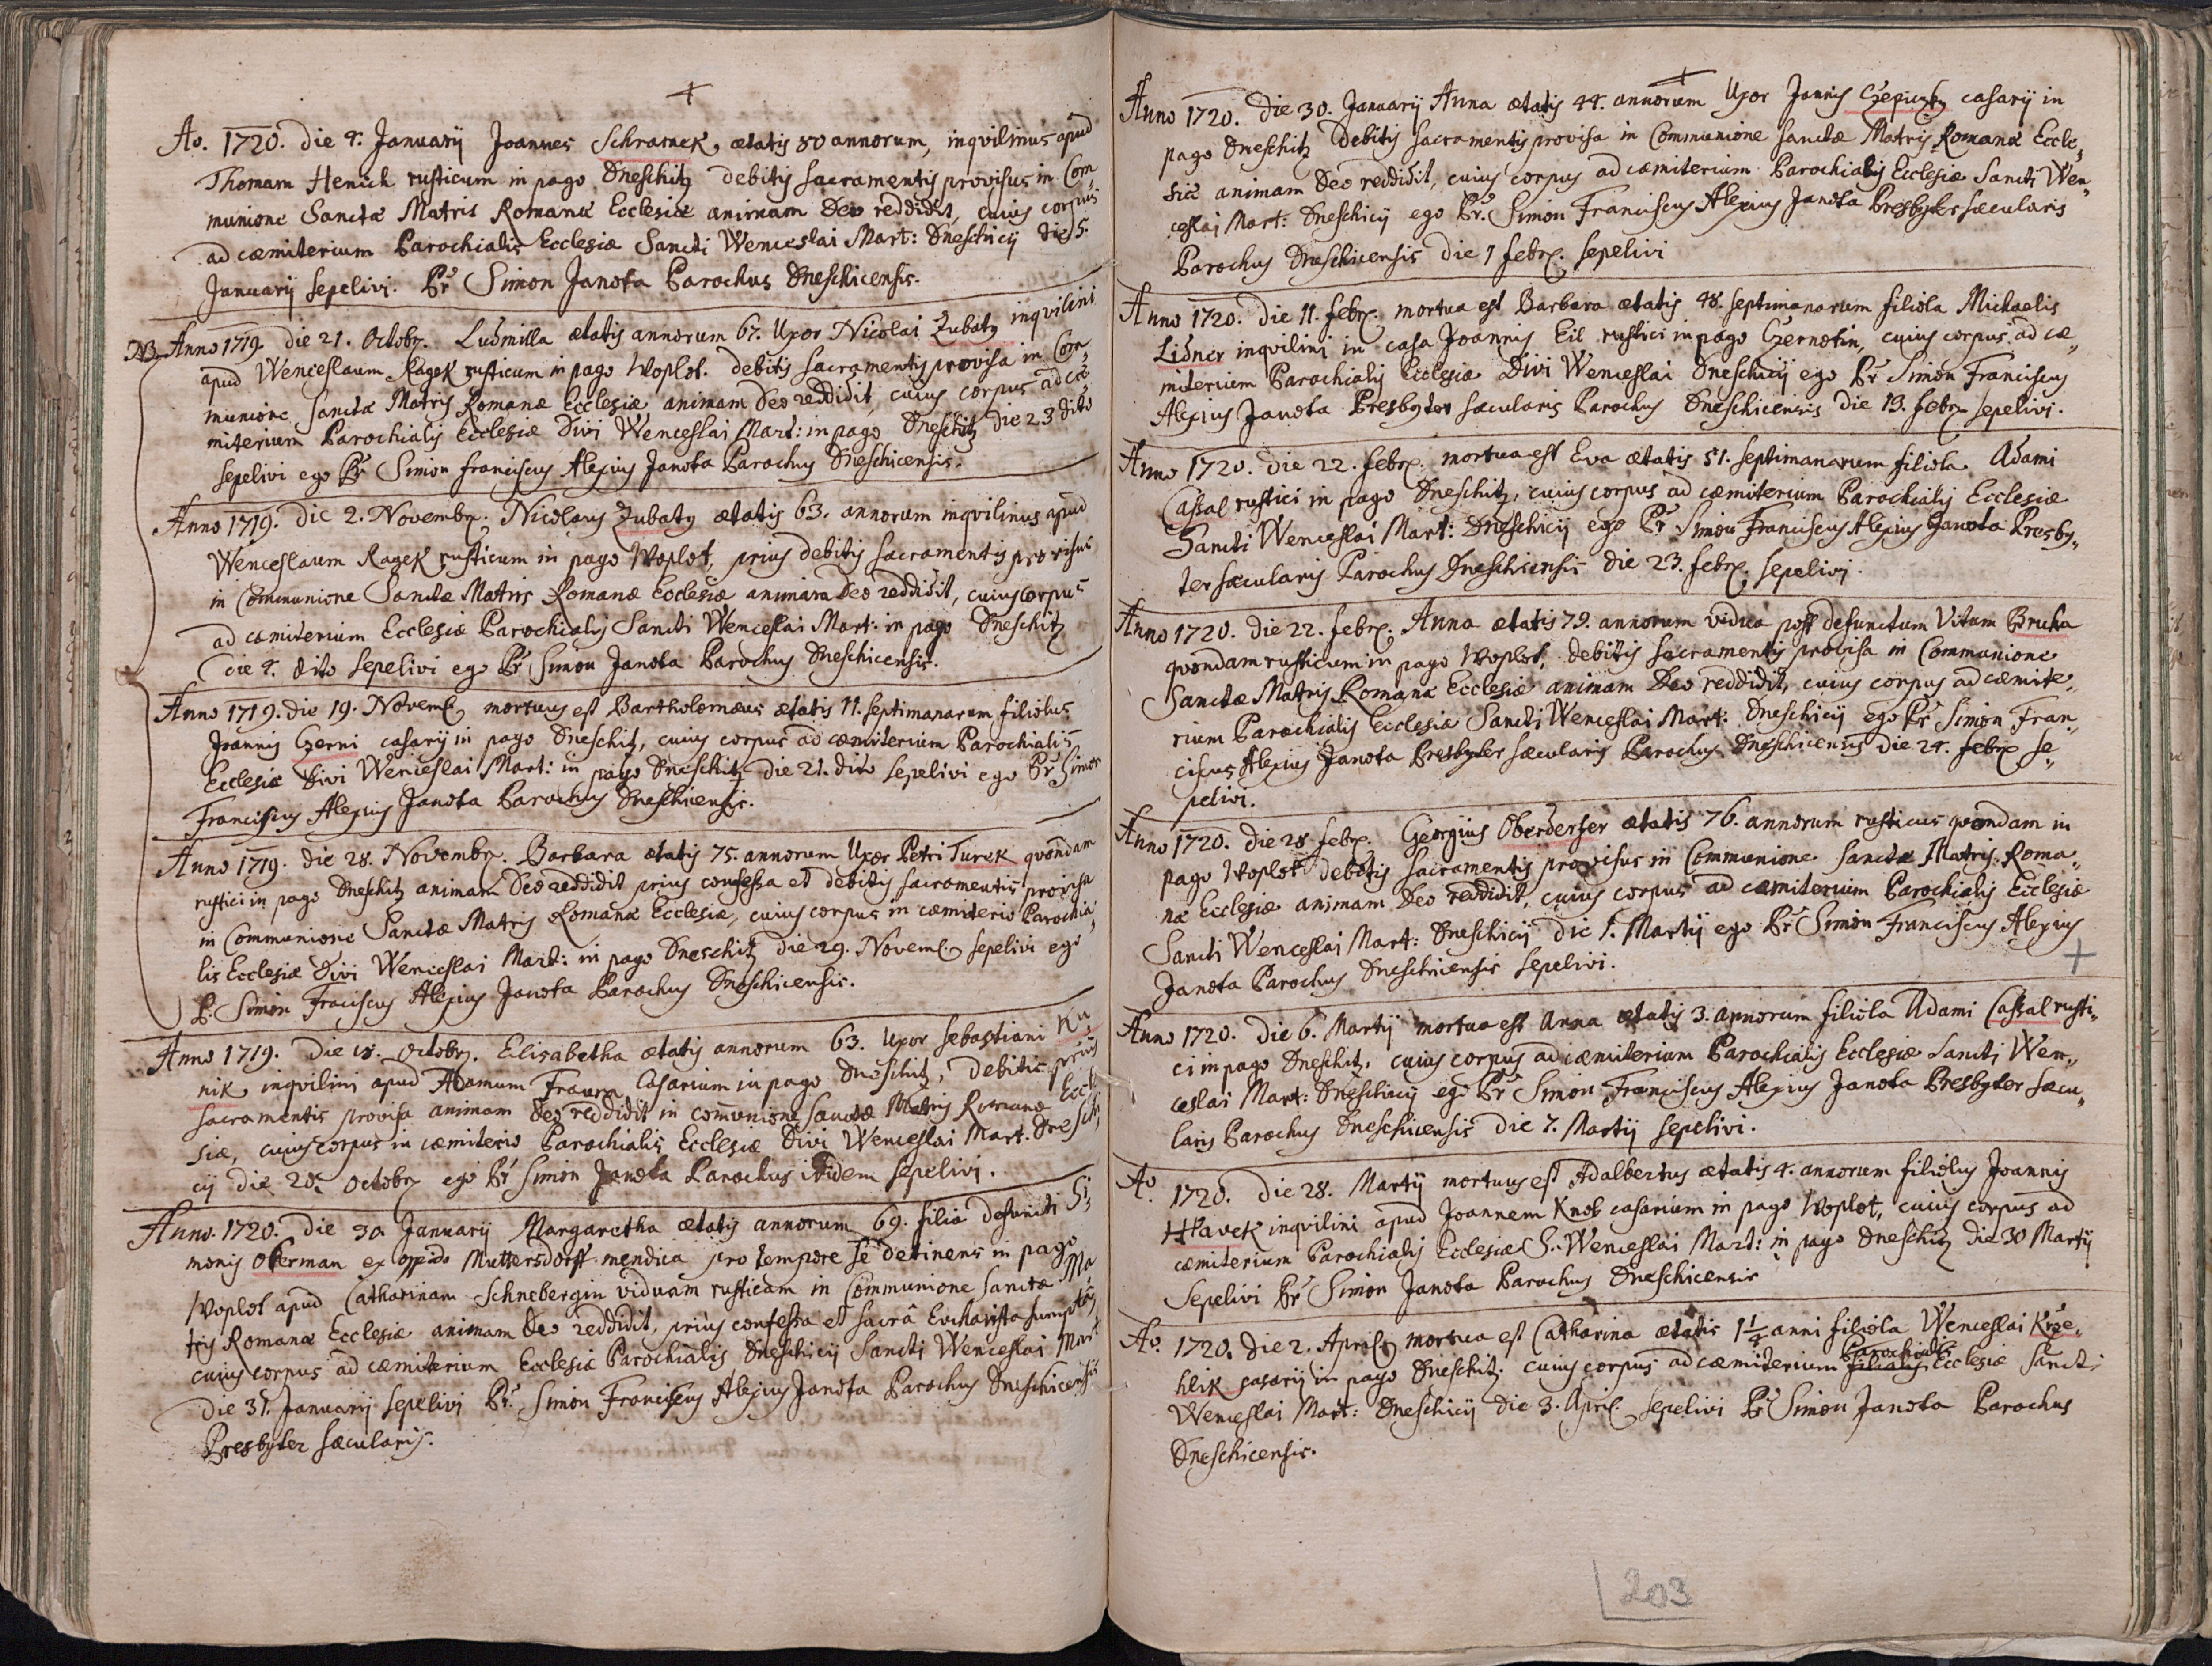 Ao. 1720. die 4. Januarij Joannes Schramek, ætatis 50 annorum, inqvilinus apud
Thomam Henich rusticum in pago Dneschitz debitis sacramentis provisus in Com„
munione Sanctæ Matris Romanæ Ecclesiæ animam Deo reddidit, cuius corpus
ad cæmiterium Parochialis Ecclesiæ Sancti Wenceslai Mart: Dneschicij die 5.
Januarij sepelivi. Pr̃ Simon Janota Parochus Dneschicensis.
NB. Anno 1719. die 21. Octobr. Ludmilla ætatis annorum 67. Uxor Nicolai Zubaty inqvilini
apud Wenceslaum Ragek rusticum in pago Woplot. debitis sacramentis provisa in Com„
munione sanctæ Matris Romanæ Ecclesiæ animam Deo reddidit, cuius corpus ad cæ„
miterium Parochialis Ecclesiæ Divi Wenceslai Mart: in pago Dneschitz die 23 dito
sepelivi ego Pr̃ Simon Franciscus Alexius Janota Parochus Dneschicensis.
Anno 1719. die 2. Novembr. Nicolaus Zubaty ætatis 63. annorum inqvilinus apud
Wenceslaum Ragek rusticum in pago Woplot, prius debitis sacramentis provisus
in Communione Sanctæ Matris Romanæ Ecclesiæ animam Deo reddidit, cuius corpus
ad cæmiterium Ecclesiæ Parochialis Sancti Wenceslai Mart: in pago Dneschitz
die 4. dito sepelivi ego Pr̃ Simon Janota Parochus Dneschicensis.
Anno 1719. die 19. Novemb mortuus est Bartholomæus ætatis 11. septimanarum filiolus
Joannis Czerni casarij in pago Dneschitz, cuius corpus ad cæmiterium Parochialis
Ecclesiæ Divi Wenceslai Mart: in pago Dneschitz die 21. dito sepelivi ego Pr̃ Simon
Franciscus Alexius Janota Parochus Dneschicensis.
Anno 1719. die 28. Novembr. Barbara ætatis 75. annorum Uxor Petri Turek qvondam
rustici in pago Dneschitz animam Deo reddidit prius confessa et debitis sacramentis provisa
in Communione Sanctæ Matris Romanæ Ecclesiæ, cuius corpus in cæmiterio Parochia„
lis Ecclesiæ Divi Wenceslai Mart: in pago Dneschitz die 29. Novemb sepelivi ego
P. Simon Fraciscus Alexius Janota Parochus Dneschicensis.
Anno 1719. die 18. Octobr. Elisabetha ætatis annorum 63. Uxor Sebastiani Ku„
nik inqvilini apud Adamum Casarium in pago Dneschitz, debitis prius
sacramentis provisa animam Deo reddidit in com̃unione sanctæ Matris Romanæ Eccle
siæ, cuius corpus in cæmiterio Parochialis Ecclesiæ Divi Wenceslai Mart. Dneschi
cij die 20. Octobr ego Pr̃ Simon Janota Parochus ibidem sepelivi.
Anno. 1720. die 30 Januarij Margaretha ætatis annorum 69. filia defuncti Si„
monis Oberman ex oppido Muttersdorff mendica pro tempore se detinens in pago
Woplot apud Catharinam Schnebergin viduam rusticam in Communione sanctæ Ma
tris Romanæ Ecclesiæ animam Deo reddidit, prius confessa et sacrâ Evcharistia sumptâ
cuius corpus ad cæmiterium Ecclesiæ Parochialis Dneschicij Sancti Wenceslai Mart
die 31. Januarij sepelivi Pr̃. Simon Franciscus Alexius Janota Parochus Dneschicensis
Presbyter sæcularis.
Anno 1720. die 30. Januarij Anna ætatis 44. annorum Uxor Joannis casarij in
pago Dneschitz debitis sacramentis provisa in Communione sanctæ Matris Romanæ Eccle„
siæ animam Deo reddidit, cuius corpus ad cæmiterium Parochialis Ecclesiæ Sancti Wen„
ceslai Mart: Dneschicij ego Pr̃. Simon Franciscus Alexius Janota Presbyter sæcularis
Parochus Dneschicensis die 1 febr. sepelivi
Anno 1720. die 11. febr. mortua est Barbara ætatis 48. septimanarum filiola Michaelis
Lidner inqvilini in casa Joannis Eil rustici in pago Czernotin, cuius corpus ad cæ„
miterium Parochialis Ecclesiæ Divi Wenceslai Dneschicij ego Pr̃ Simon Franciscus
Alexius Janota Presbyter sæcularis Parochus Dneschicensis die 13. febr sepelivi.
Anno 1720. die 22. febr. mortua est Eva ætatis 51. septimanarum filiola Adami
Cassal rustici in pago Dneschitz, cuius corpus ad cæmiterium Parochialis Ecclesiæ
Sancti Wenceslai Mart: Dneschicij ego Pr̃ Simon Franciscus Alexius Janota Presby„
ter sæcularis Parochus Dneschicensis die 23. febr. sepelivi.
Anno 1720. die 22. febr. Anna ætatis 79. annorum vidua post defunctum Vitum Bruha
qvondam rusticum in pago Woplot, debitis sacramentis provisa in Communione
Sanctæ Matris Romanæ Ecclesiæ animam Deo reddidit, cuius corpus ad cæmite„
rium Parochialis Ecclesiæ Sancti Wenceslai Mart: Dneschicij ego Pr̃ Simon Fran„
ciscus Alexius Janota Presbyter sæcularis Parochus Dneschicensis die 24. febr se„
pelivi.
Anno 1720. die 28 febr. Georgius Oberderfer ætatis 76. annorum rusticus qvondam in
pago Woplot debitis sacramentis provisus in Communione sanctæ Matris Roma„
næ Ecclesiæ animam Deo reddidit, cuius corpus ad cæmiterium Parochialis Ecclesiæ
Sancti Wenceslai Mart: Dneschicij die 1. Martij ego Pr̃ Simon Franciscus Alexius
Janota Parochus Dneschicensis sepelivi.
Anno 1720. die 6. Martij mortua est Anna ætatis 3. annorum filiola Adami Cassal rusti„
ci in pago Dneschitz, cuius corpus ad cæmiterium Parochialis Ecclesiæ Sancti Wen„
ceslai Mart: Dneschicij ego Pr̃ Simon Franciscus Alexius Janota Presbyter sæcu„
laris Parochus Dneschicensis die 7. Martij sepelivi.
Ao. 1720. die 28. Martij mortuus est Adalbertus ætatis 4. annorum filiolus Joannis
Hlavek inqvilini apud Joannem Knob casarium in pago Woplot, cuius corpus ad
cæmiterium Parochialis Ecclesiæ S. Wenceslai Mart: in pago Dneschitz die 30 Martij
sepelivi Pr̃ Simon Janota Parochus Dneschicensis
Ao. 1720. die 2. April mortua est Catharina ætatis 1 1/4 anni filiola Wenceslai Krze„
hlik casarij in pago Dneschitz. cuius corpus ad cæmiterium filialis Parochialis Ecclesiæ Sancti
Wenceslai Mart: Dneschicij die 3. April sepelivi Pr̃ Simon Janota Parochus
Dneschicensis.
203